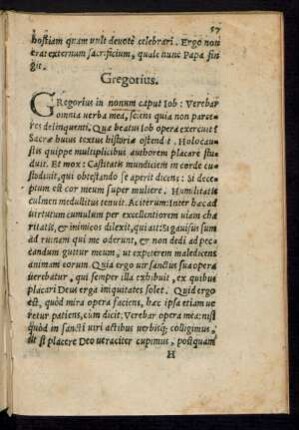 57
hostiam quam vult deuotè celebrari. Ergo non
erat externum sacrificium, quale nunc Papa fin
git.
Gregorius.
GRegorius in nonum caput Iob: Verebar
omnia verba mea, sciens quia non parce-
res delinquenti. Quæ beatus Iob opera exercuit
Sacræ huius textus historia ostendit. Holocau-
stis quippe multiplicibus authorem placare stu
duit. Et mox: Castitatis mundiciem in corde cu
stodiuit, qui obtestando se aperit dicens: Si dece-
ptum est cor meum super muliere. Humilitatis
culmen medullitus tenuit. Ac iterum: Inter hæc ad
uirtutum cumulum per excellentiorem uiam cha
ritatis, & inimicos dilexit, qui ait: Si gauisus sum
ad ruinam qui me oderunt, & non dedi ad pec-
candum guttur meum, ut expeterem maledicens
animam eorum. Quid ergo uir sanctus sua opera
uerebatur, qui semper illa exhibuit, ex quibus
placari Deus erga iniquitates solet. Quid ergo
est, quòd mira opera faciens, hæc ipsa etiam ue
retur patiens, cum dicit: Verebar opera mea: nisi
quòd in sancti uiri actibus uerbisq; colligimus,
ut si placere Deo ueraciter cupimus, postquam
H